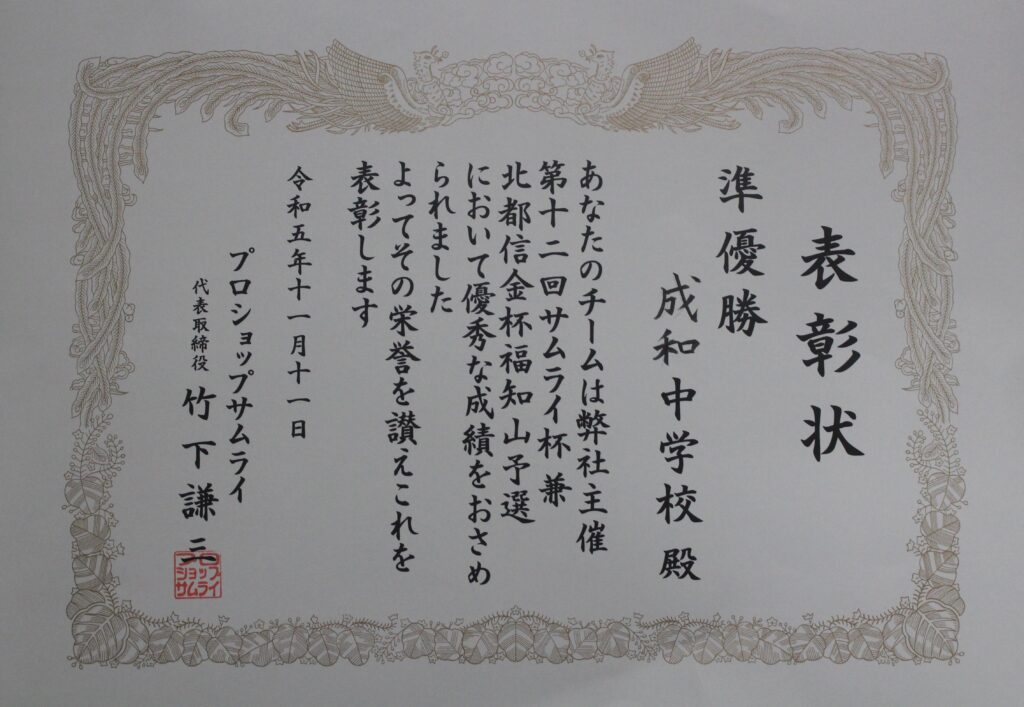 表彰状
準優勝
成和中学校殿
あなたのチームは弊社主催
第十二回サムライ杯兼
北都信金杯福知山予選
において優秀な成績をおさめ
られました
よってその栄誉を讃えこれを
表彰します
令和五年十一月十一日
プロショップサムライ
代表取締役 竹下謙三
プロ
ショップ
サムライ